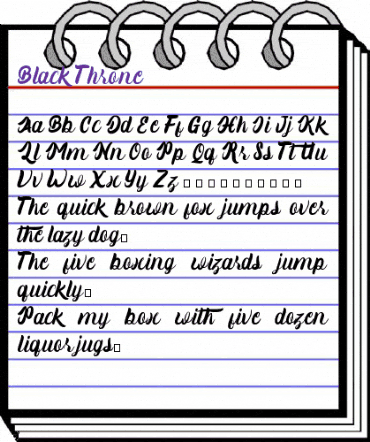 Black Throne
Aa Bb Cc Dd Ee Ff Gg Hh Ii Jj Kk
Ll Mm Nn Oo Pp Qq Rr Ss Tt Uu
Vv Ww Xx Yy Zz □□□□□□□□□□
The quick brown fox jumps over
the lazy dog□
The five boxing wizards jump
quickly□
Pack my box with five dozen
liquor jugs□